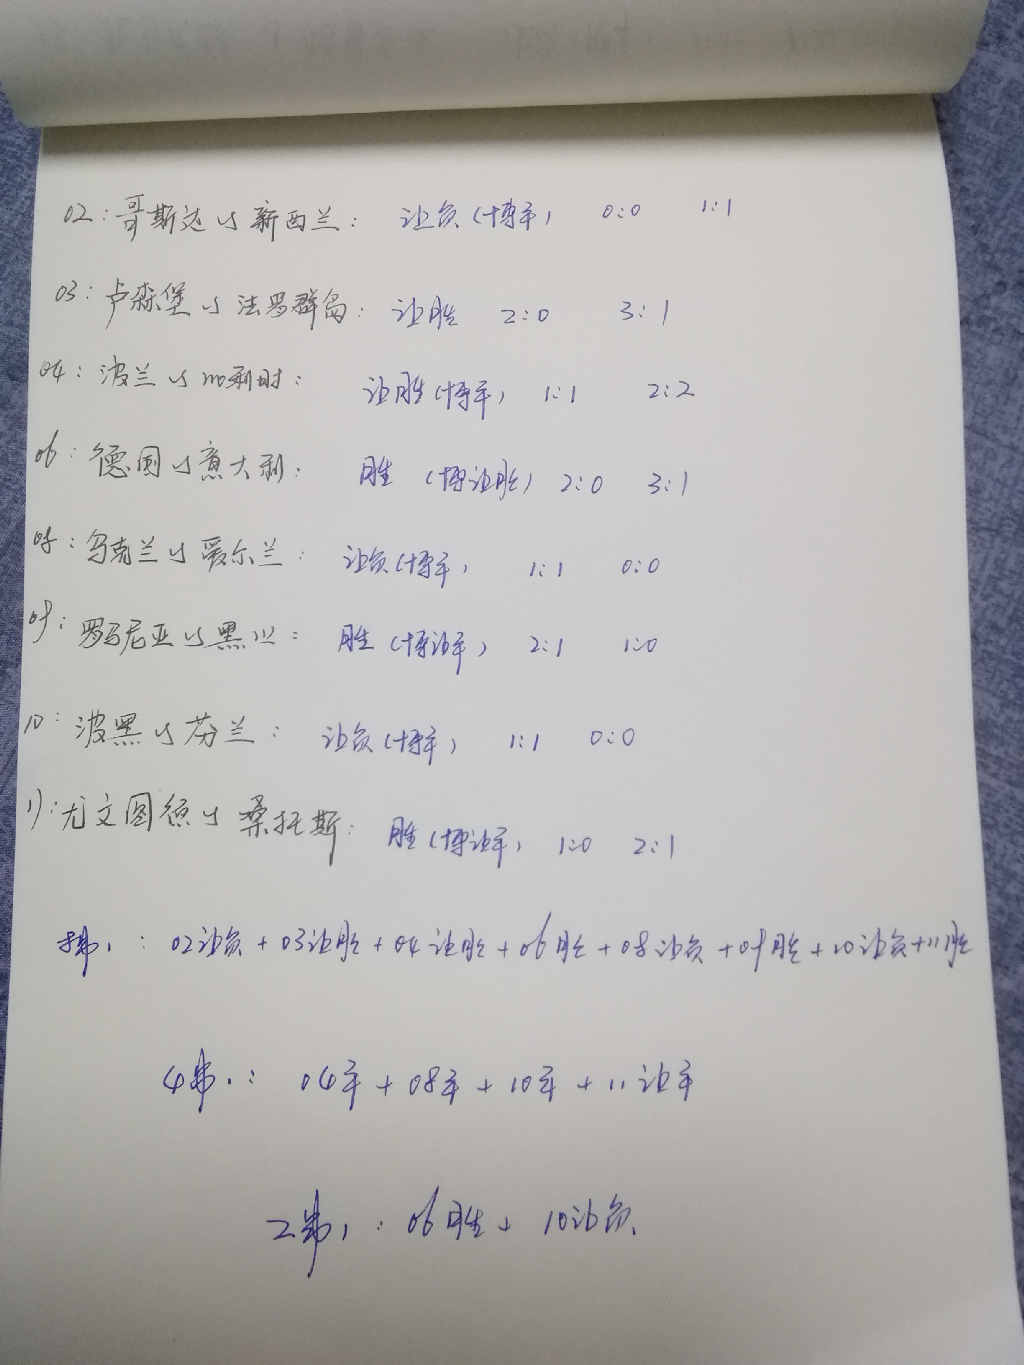 02：哥斯达 vs 新西兰：让负（博平） 0:0 1:1
03：卢森堡 vs 法罗群岛：让胜 2:0 3:1
04：波兰 vs 比利时：让胜（博平） 1:1 2:2
06：德国 vs 意大利：胜（博让胜） 2:0 3:1
08：乌克兰 vs 爱尔兰：让负（博平） 1:1 0:0
09：罗马尼亚 vs 黑山：胜（博让平） 2:1 1:0
10：波黑 vs 芬兰：让负（博平） 1:1 0:0
11：尤文图德 vs 桑托斯：胜（博让平） 1:0 2:1
：02让负+03让胜+04让胜+06胜+08让负+09胜+10让负+11胜
4串1：04平+08平+10平+11让平
2串1：06胜+10让负